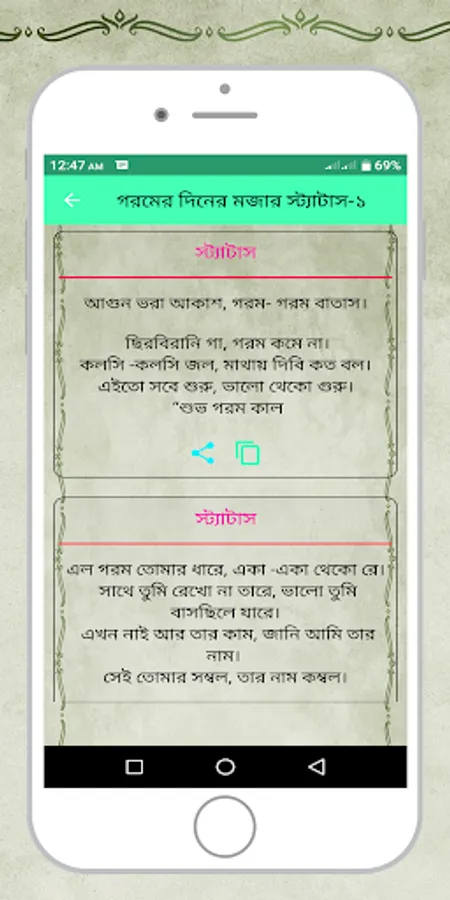 12:47 AM 69%
গরমের দিনের মজার স্ট্যাটাস-১
স্ট্যাটাস
আগুন ভরা আকাশ, গরম- গরম বাতাস।
ছিরবিরানি গা, গরম কমে না।
কলসি -কলসি জল, মাথায় দিবি কত বল।
এইতো সবে শুরু, ভালো থেকো গুরু।
“শুভ গরম কাল
স্ট্যাটাস
এল গরম তোমার ধারে, একা -একা থেকো রে।
সাথে তুমি রেখো না তারে, ভালো তুমি
বাসছিলে যারে।
এখন নাই আর তার কাম, জানি আমি তার
নাম।
সেই তোমার সম্বল, তার নাম কম্বল।